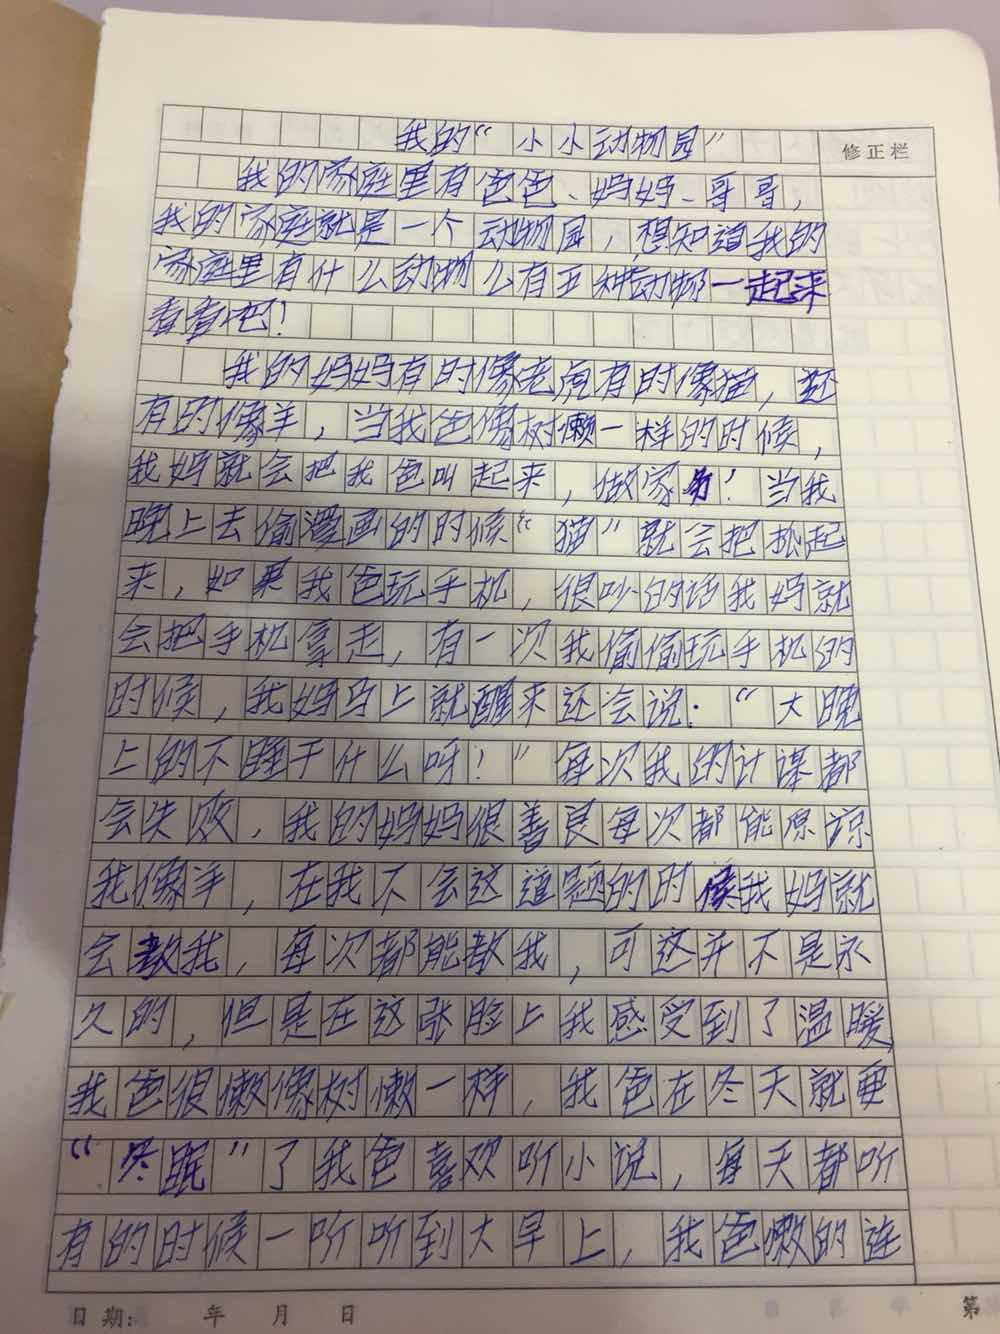 我的“小小动物园”
修正栏
我的家庭里有爸爸、妈妈、哥哥，
我的家庭就是一个动物园，想知道我的
家庭里有什么动物么有五种动物一起来
看看吧！
我的妈妈有时像老虎有时像猫，还
有的像羊，当我爸像树懒一样的时候，
我妈就会把我爸叫起来，做家务！当我
晚上去偷漫画的时候“猫”就会把抓起
来，如果我爸玩手机，很吵的话我妈就
会把手机拿走，有一次我偷偷玩手机的
时候，我妈马上就醒来还会说：“大晚
上的不睡干什么呀！”每次我的计谋都
会失败，我的妈妈很善良每次都能原谅
我像羊，在我不会这道题的时候我妈就
会教我，每次都能教我，可这并不是永
久的，但是在这张脸上我感受到了温暖，
我爸很懒像树懒一样，我爸在冬天就要
“冬眠”了我爸喜欢听小说，每天都听
有的时候一听听到大早上，我爸懒的连
日期： 年 月 日
第